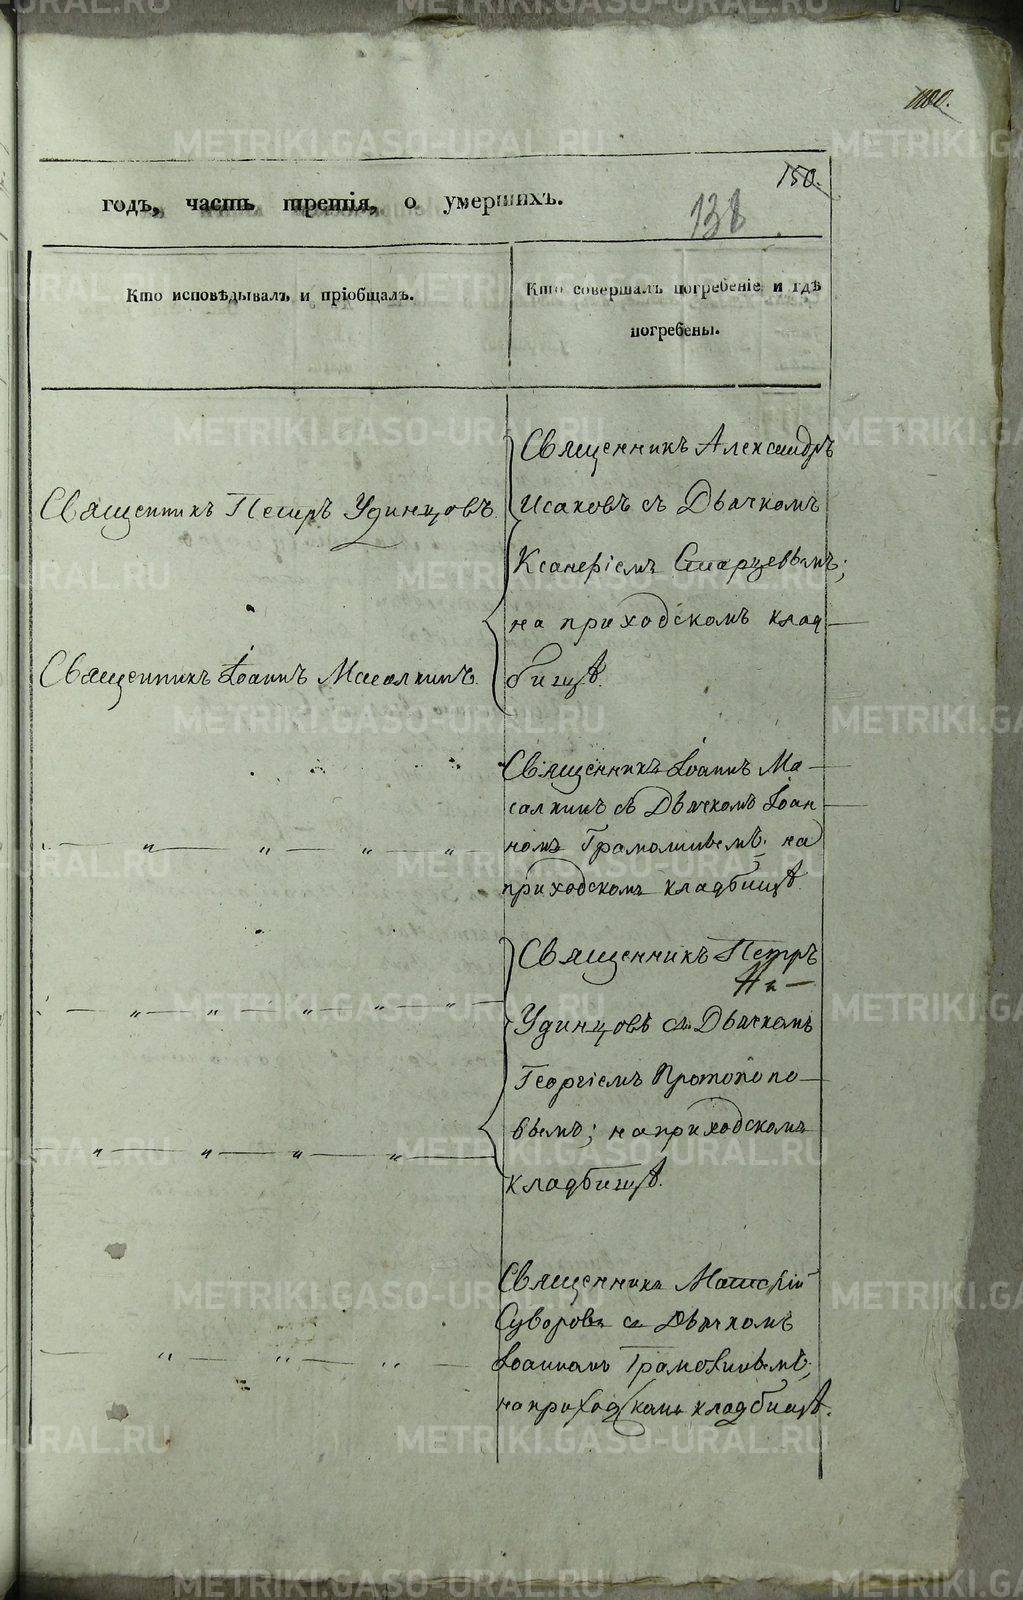 1100.
150.
138
годъ, часть третія, о умершихъ.
Кто исповѣдывалъ и пріобщалъ.
Кто совершалъ погребеніе и гдѣ
погребены.
Священникъ Александръ
Исаковъ съ Дьячкомъ
Священникъ Петръ Удинцовъ
Ксанеріемъ Старцевымъ;
на приходскомъ клад-
бищѣ.
Священникъ Іоаннъ Масалкинъ.
Священникъ Іоаннъ Ма-
салкинъ съ Дьячкомъ Іоан-
номъ на
приходскомъ кладбищѣ.
Священникъ Петръ
Удинцовъ съ Дьячкомъ
Георгіемъ Протопопо-
вымъ; на приходскомъ
кладбищѣ.
Священникъ
Суворовъ съ Дьячкомъ
Іоанномъ
на приходскомъ кладбищѣ.
METRIKI.GASO-URAL.RU